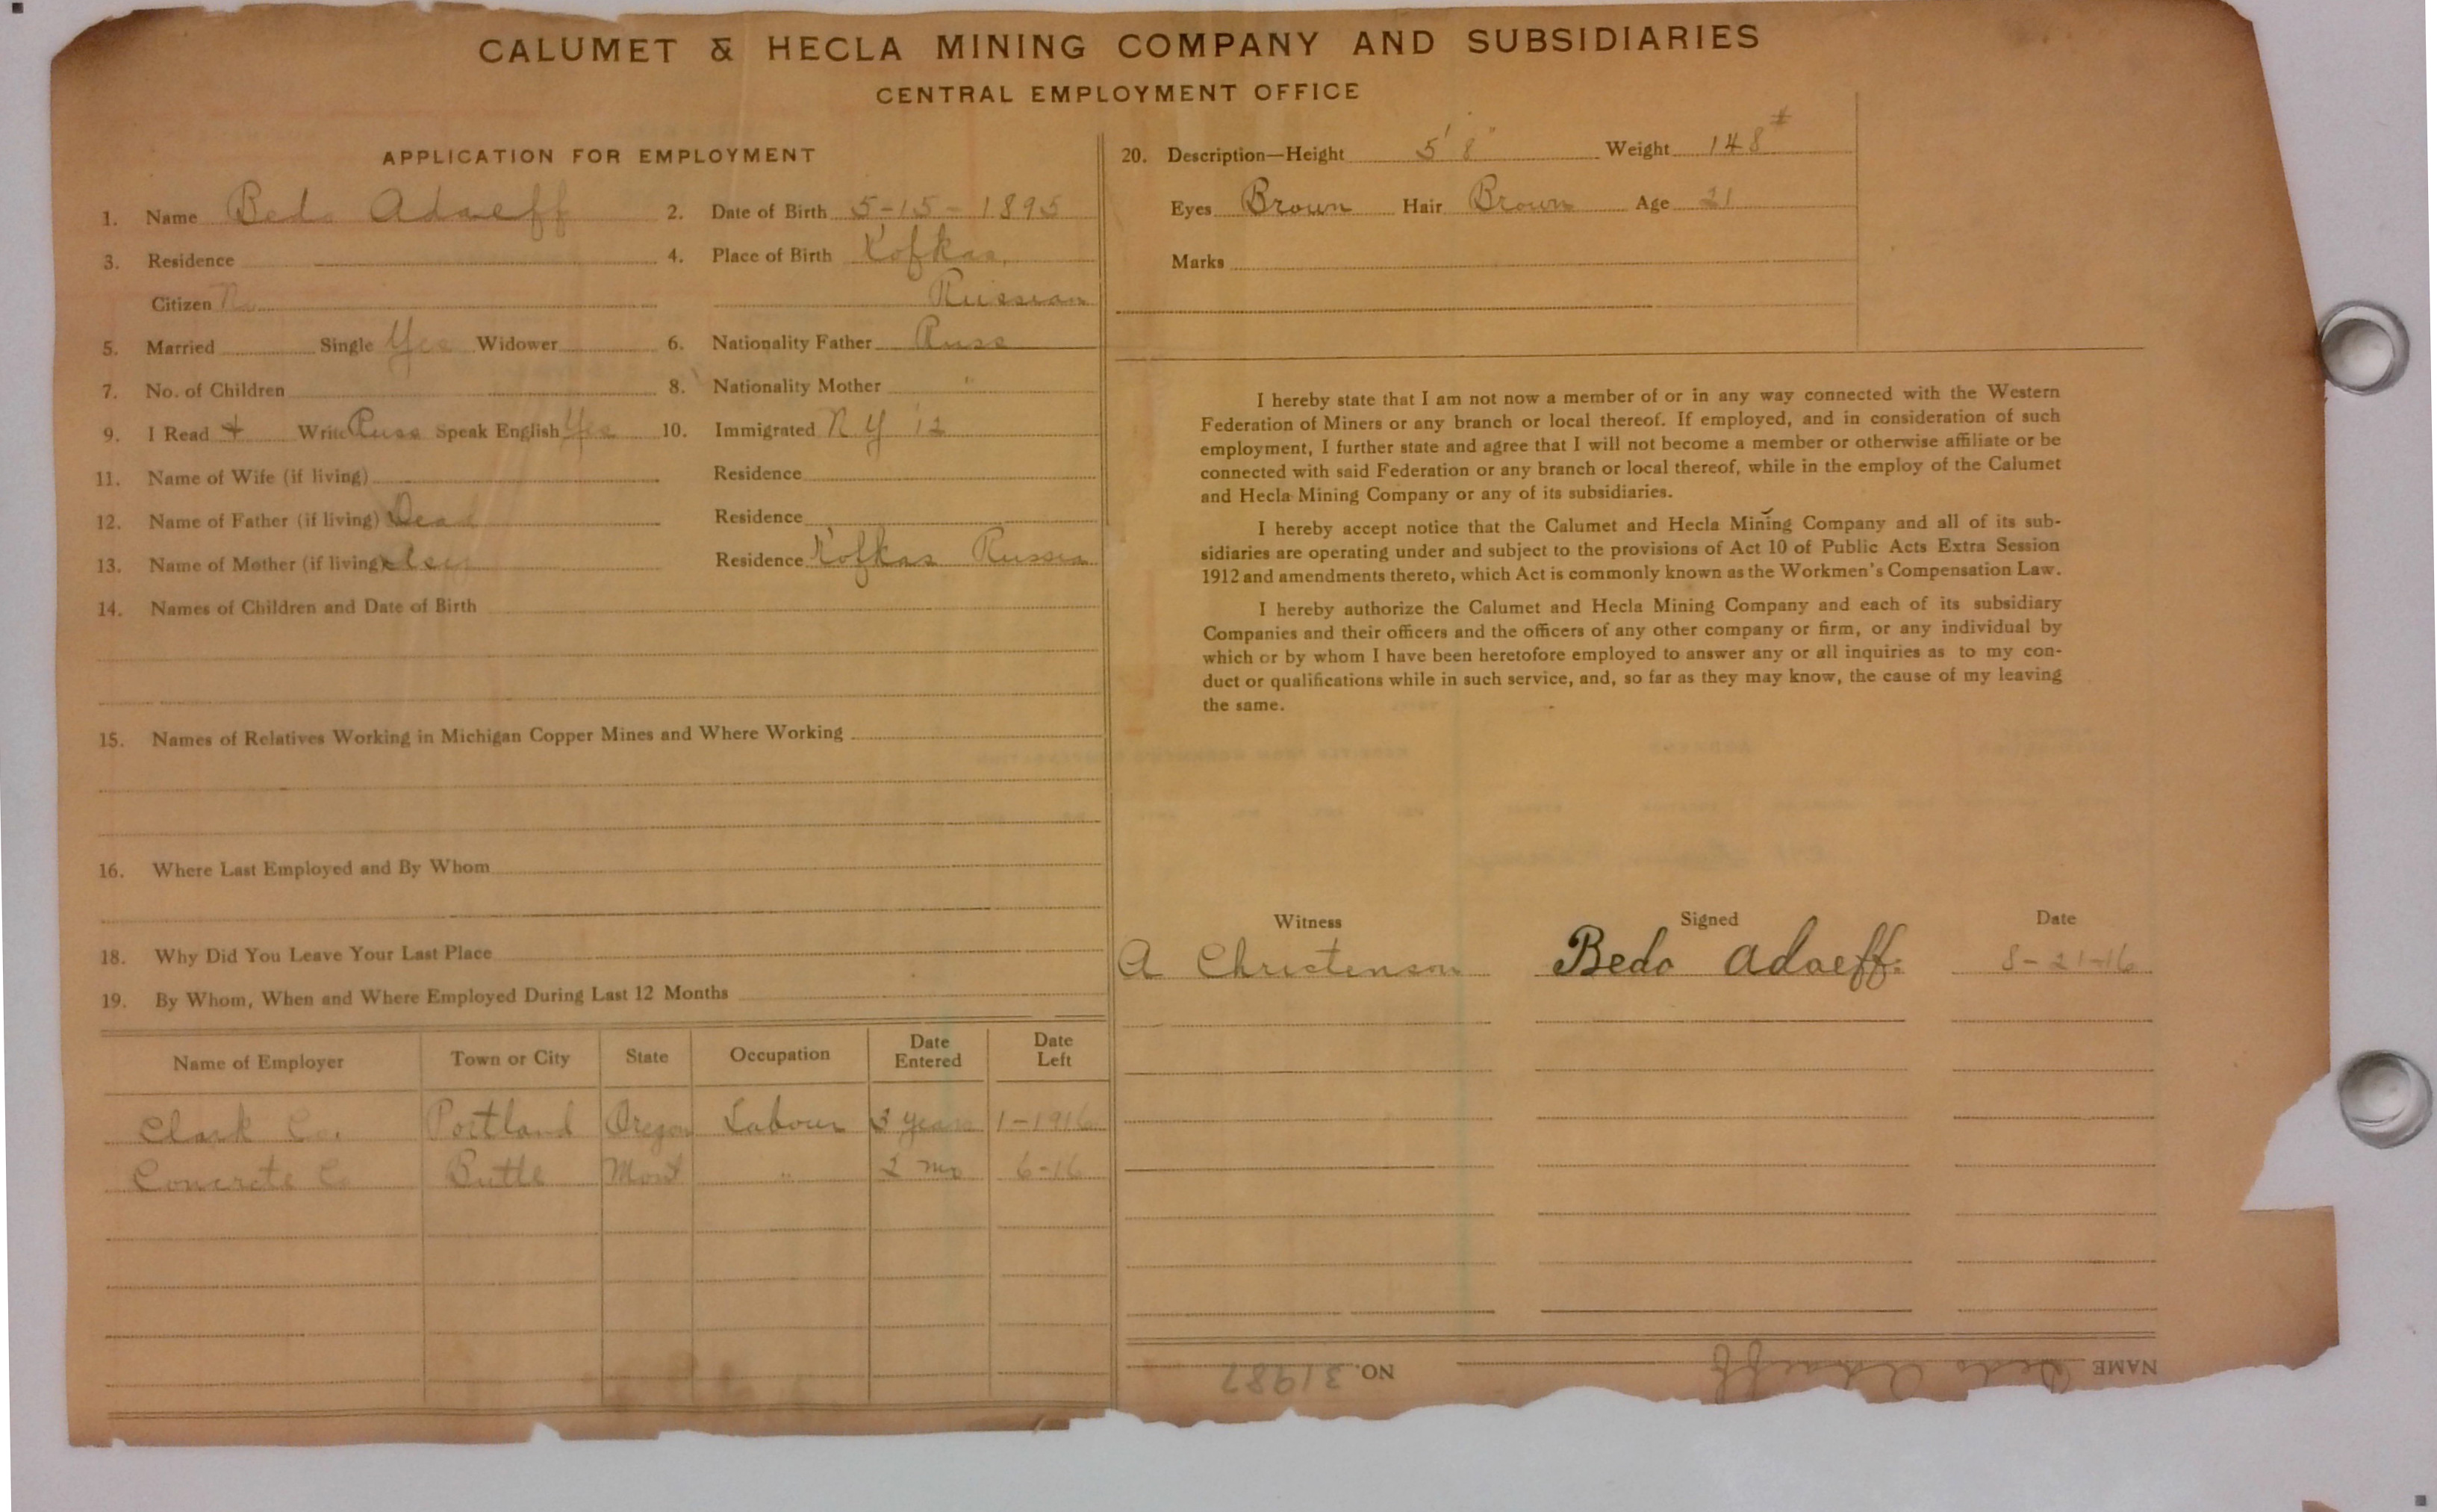 CALUMET & HECLA MINING COMPANY AND SUBSIDIARIES
CENTRAL EMPLOYMENT OFFICE
APPLICATION FOR EMPLOYMENT
1. Name Bedo Adaeff 2. Date of Birth 5-15-1895
3. Residence 4. Place of Birth Kofkas,
Citizen No Russian
5. Married Single Yes Widower 6. Nationality Father Russ
7. No. of Children 8. Nationality Mother "
9. I Read + Write Russ Speak English Yes 10. Immigrated N Y '12
11. Name of Wife (if living) Residence
12. Name of Father (if living) Dead Residence
13. Name of Mother (if living) Residence Kofkas Russia
14. Names of Children and Date of Birth
15. Names of Relatives Working in Michigan Copper Mines and Where Working
16. Where Last Employed and By Whom
18. Why Did You Leave Your Last Place
19. By Whom, When and Where Employed During Last 12 Months
Name of Employer Town or City State Occupation Date Entered Date Left
Clark Co. Portland Oregon Labour 3 years 1-1916
Concrete Co Butte Mont " 2 mo 6-16
20. Description—Height 5' 8" Weight 148#
Eyes Brown Hair Brown Age 21
Marks
I hereby state that I am not now a member of or in any way connected with the Western
Federation of Miners or any branch or local thereof. If employed, and in consideration of such
employment, I further state and agree that I will not become a member or otherwise affiliate or be
connected with said Federation or any branch or local thereof, while in the employ of the Calumet
and Hecla Mining Company or any of its subsidiaries.
I hereby accept notice that the Calumet and Hecla Mining Company and all of its sub-
sidiaries are operating under and subject to the provisions of Act 10 of Public Acts Extra Session
1912 and amendments thereto, which Act is commonly known as the Workmen's Compensation Law.
I hereby authorize the Calumet and Hecla Mining Company and each of its subsidiary
Companies and their officers and the officers of any other company or firm, or any individual by
which or by whom I have been heretofore employed to answer any or all inquiries as to my con-
duct or qualifications while in such service, and, so far as they may know, the cause of my leaving
the same.
Witness Signed Date
A Christenson Bedo Adaeff. 8-21-16
NAME Bedo Adaeff NO. 31987